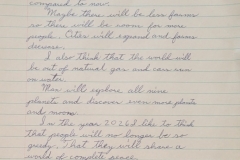 compared to now.
Maybe there will be less farms
so there will be room for more
people. Cities will expand and farms
decrease.
I also think that the world will
be out of natural gas and cars run
on water.
Man will explore all nine
planets and discover even more planets
and moons.
In the year 2026 I like to think
that people will no longer be so
greedy. That they will share a
world of complete peace.